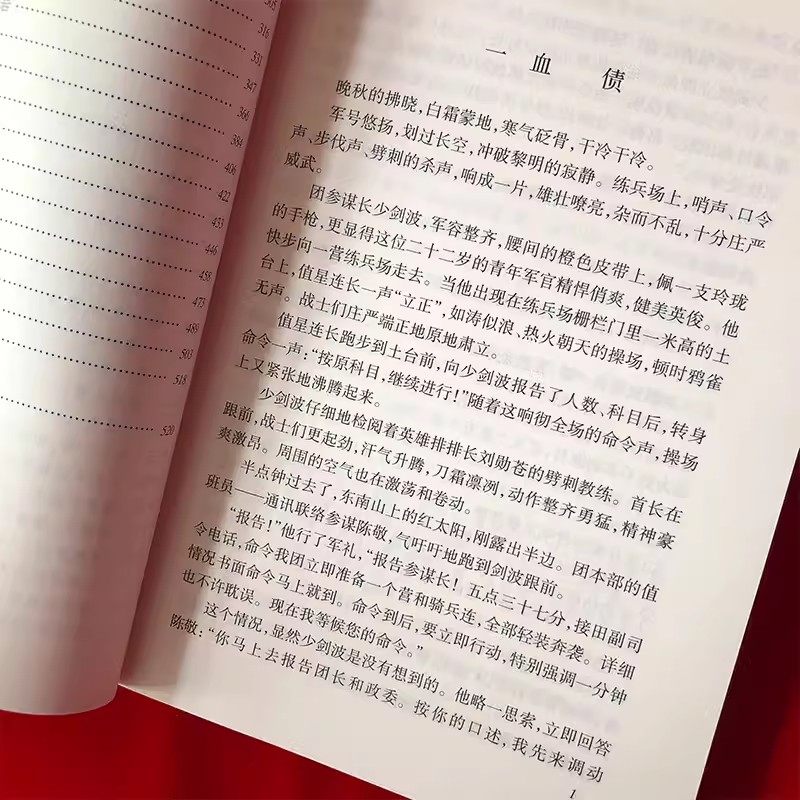 305
316
331
347
366
384
406
422
433
446
458
473
489
503
518
520
一 血 债
晚秋的拂晓,白霜蒙地,寒气砭骨,干冷干冷。
军号悠扬,划过长空,冲破黎明的寂静。练兵场上,哨声、口令
声、步伐声、劈刺的杀声,响成一片,雄壮嘹亮,杂而不乱,十分庄严
威武。
团参谋长少剑波,军容整齐,腰间的橙色皮带上,佩一支玲珑
的手枪,更显得这位二十二岁的青年军官精悍俏爽,健美英俊。他
快步向一营练兵场走去。当他出现在练兵场栅栏门里一米高的土
台上,值星连长一声“立正”,如涛似浪、热火朝天的操场,顿时鸦雀
无声。战士们庄严端正地原地肃立。
值星连长跑步到土台前,向少剑波报告了人数、科目后,转身
命令一声:“按原科目,继续进行!”随着这响彻全场的命令声,操场
上又紧张地沸腾起来。
少剑波仔细地检阅着英雄排排长刘勋苍的劈刺教练。首长在
跟前,战士们更起劲,汗气升腾,刀霜凛冽,动作整齐勇猛,精神豪
爽激昂。周围的空气也在激荡和卷动。
半点钟过去了,东南山上的红太阳,刚露出半边。团本部的值
班员——通讯联络参谋陈敬,气吁吁地跑到剑波跟前。
“报告!”他行了军礼,“报告参谋长!五点三十七分,接田副司
令电话,命令我团立即准备一个营和骑兵连,全部轻装奔袭。详细
情况书面命令马上就到。命令到后,要立即行动,特别强调一分钟
也不许耽误。现在我等候您的命令。”
这个情况,显然少剑波是没有想到的。他略一思索,立即回答
陈敬:“你马上去报告团长和政委。按你的口述,我先来调动
1